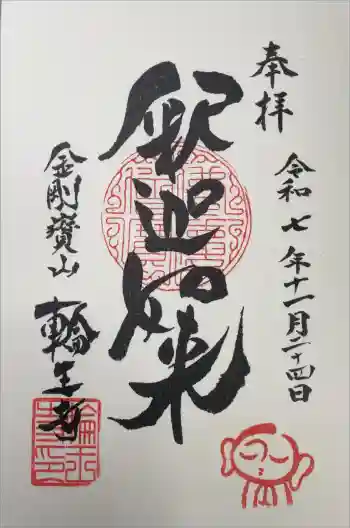 奉拝
令和七年十一月二十四日
釈迦如来
金剛寶山
輪王寺